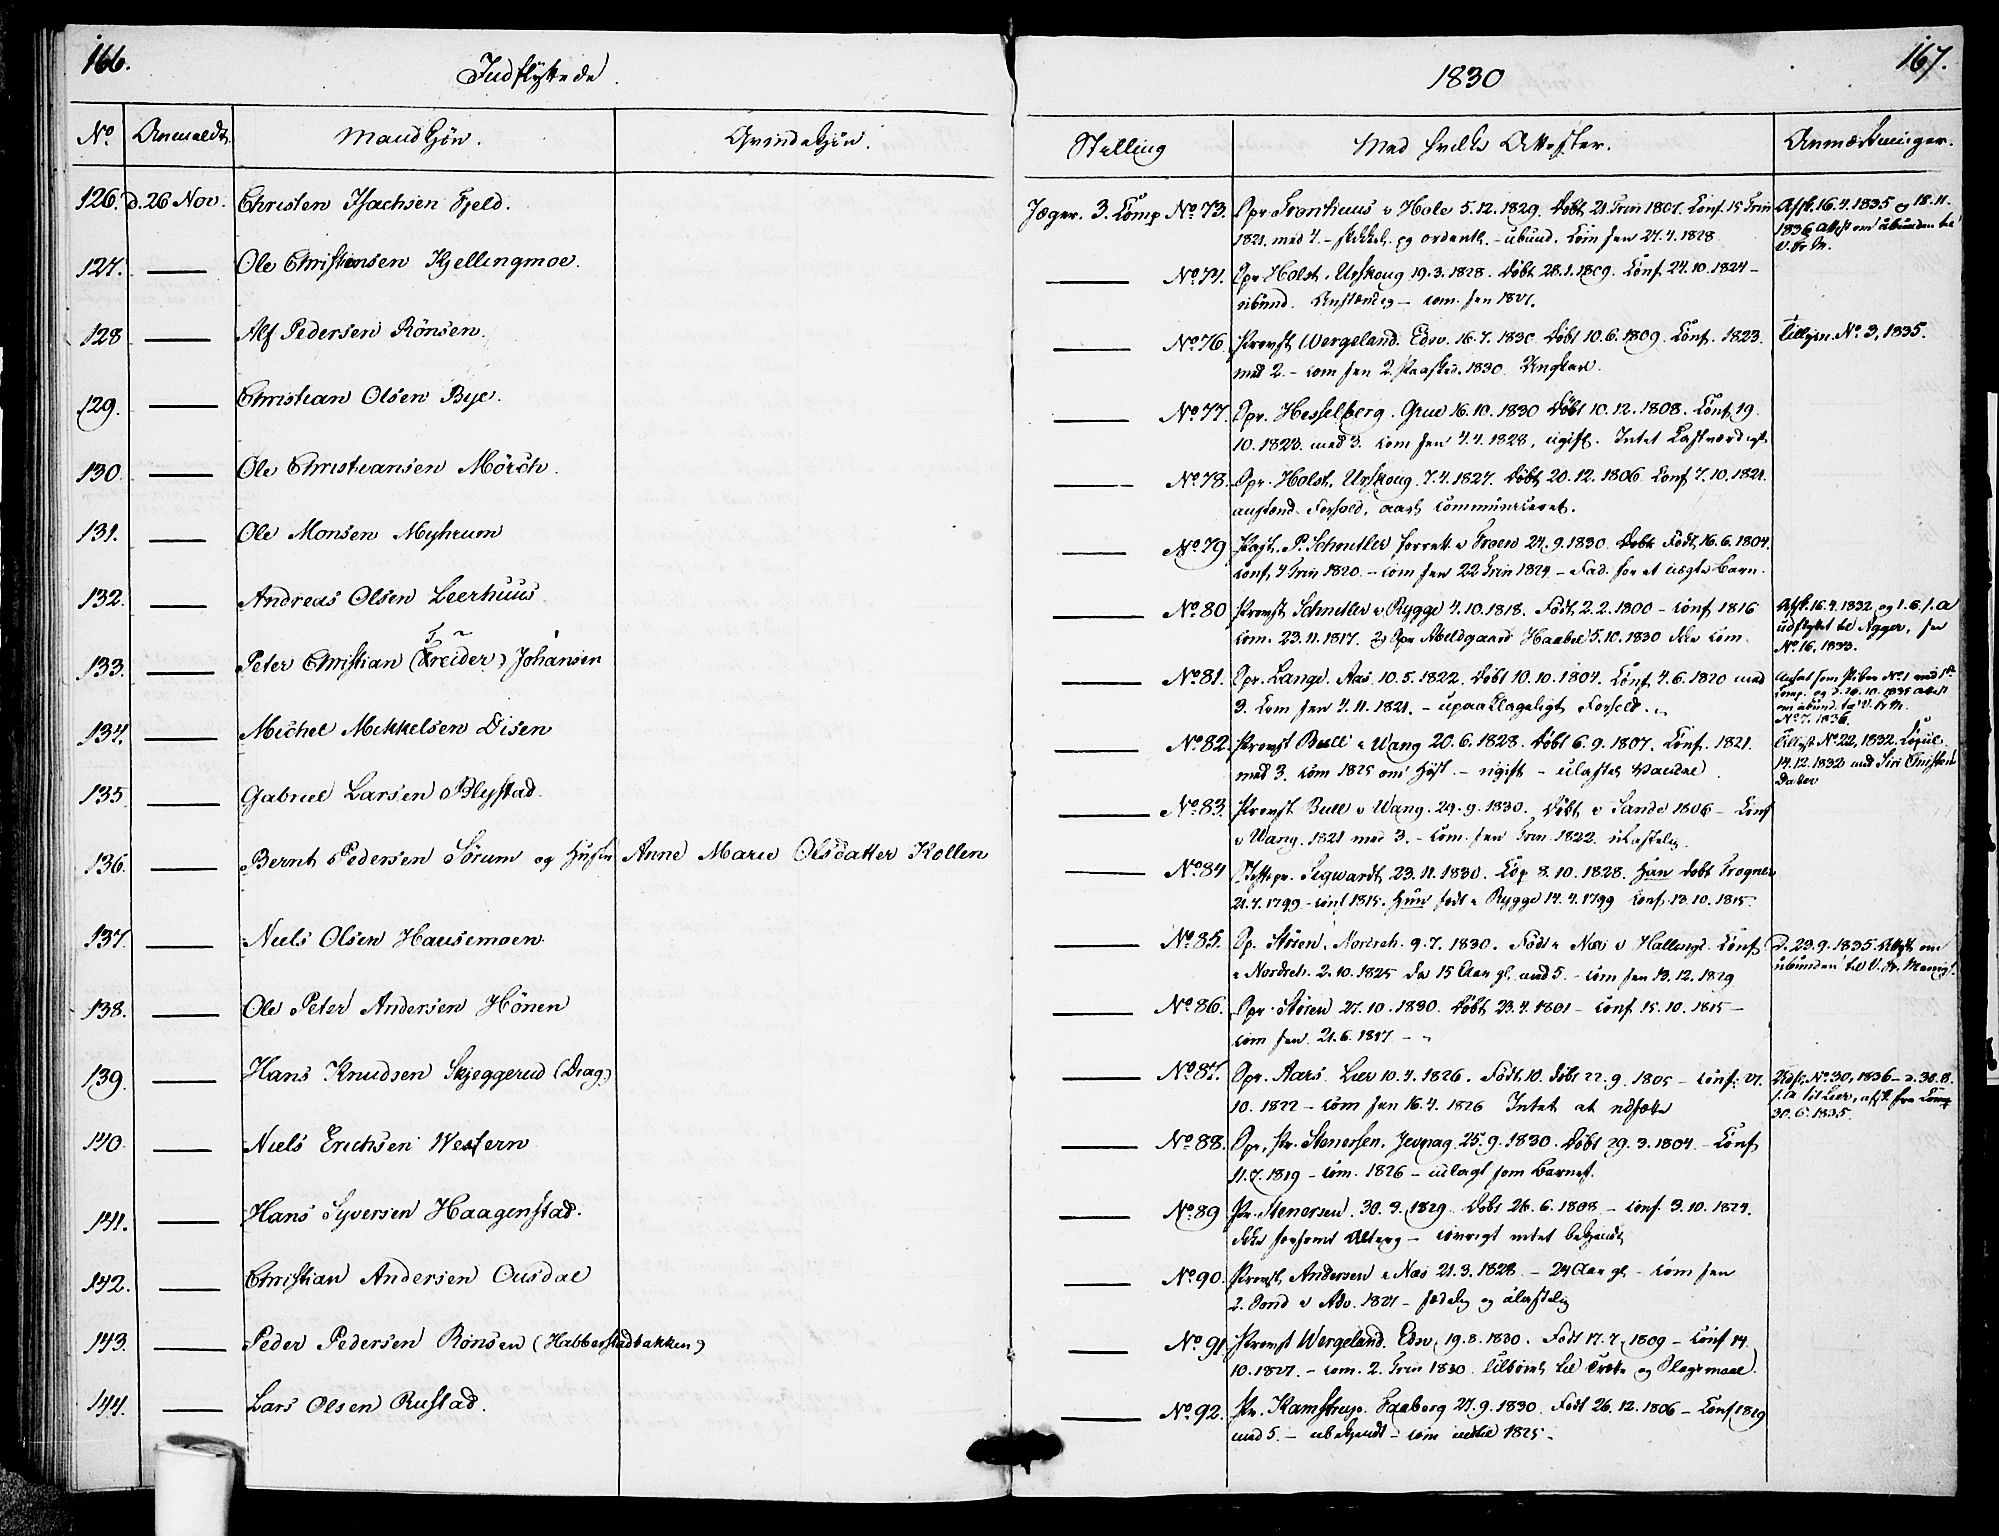 166.
Indflyttede.
No. Anmeldt. Mandkjøn. Qvindekjøn.
126. d. 26 Nov. Christen Isachsen Fjeld.
127. — Ole Christensen Kjellingmoe.
128 — Alf Pedersen Rönsen.
129. — Christian Olsen Bye.
130 — Ole Christiansen Mörch.
131. — Ole Monsen Myhrum
132. — Andreas Olsen Leerhuus
133. — Peter Christian (Treider) Johansen
134. — Michel Mekkelsen Disen
135 — Gabriel Larsen Blystad.
136. — Bernt Pedersen Sörum og Hustru Anne Marie Olsdatter Kollen
137. — Niels Olsen Hausemoen.
138. — Ole Peter Andersen Hönen
139. — Hans Knudsen Skjeggerud (Drag.)
140. — Niels Erichsen Western
141. — Hans Syversen Haagenstad.
142. — Christian Andersen Ousdal
143. — Peder Pedersen Rönsen (Habberstadbakken)
144. — Lars Olsen Rustad.
1830
167.
Stilling Med hvilke Attester. Anmærkninger.
Jæger. 3. Comp No. 73. Spr. v Hole 5.12.1829. Døbt 21 Trin 1807. Conf. 15 Trin
1821. med 4. – og ordentl. – ubund. Com sen 27.4.1828
Afsk. 16.4.1835 og 18.11.
1836 Attest om ubunden til
— No. 74. Spr Holst. Urskoug 19.3.1828. Døbt 28.1.1809. Conf. 24.10.1824 –
ubund. Anstændig – com. sen 1827.
— No. 76 Provst Wergeland. Edsv. 16.7.1830 Døbt 10.6.1809. Conf. 1823.
med 2. – com sen 2 Paasked. 1830. Ungkarl.
Tillysn. No. 3, 1835.
— No. 77 Spr. Hesselberg. Grue 16.10.1830 Døbt 10.12.1808. Conf. 19.
10.1823. med 3. com sen 4.4.1828, ugift. Intet Lastværdigt
— No. 78. Spr. Holst, Urskoug. 7.4.1827. Døbt 20.12.1806 Conf 7.10.1821.
anstænd. Forhold, aarl. communiceret.
— No. 79 P. Schnitler forrett. v Froen 24.9.1830. Født 16.6.1804.
Conf. 4 Trin 1820. – com sen 22 Trin 1824 – Fad. for et uægte Barn.
— No. 80 Provst Schnitler v Rygge 4.10.1818. Født 2.2.1800 – Conf 1816
com. 23.11.1817. 2) Spr Abildgaard Haabøl 5.10.1830 ikke com.
Afsk. 16.4.1832, og 1.6. s. A
udflyttet til Agger, see
No. 16, 1833.
— No. 81. Spr. Lange. Aas 10.5.1822. Døbt 10.10.1804. Conf 4.6.1820 med
3. Com sen 4.11.1821. – upaaklageligt Forhold.
No. 7. 1836.
— No. 82. Provst Bull v Wang 20.6.1828. Døbt 6.9.1807. Conf. 1821.
med 3. com 1825 om Høst. – ugift – ulastet Vandel.
Tillyst No. 22, 1832. Copul.
14.12.1832 med Siri Christens
Datter
— No. 83. Provst Bull v Wang. 29.9.1830. Døbt v Sande 1806 – Conf
v Wang. 1821 med 3. – Com. sen Trin. 1822. ulastelig.
— No. 84 Stiftspr. Segwardt 23.11.1830. Cop 8.10.1828. Han døbt Frogner
21.7.1799 – conf 1815. Hun født v Rygge 14.4.1799 Conf. 13.10.1815.
— No. 85. Sp. Støren. Norderh. 9.7.1830. Født v Næs v Hallingd. Conf
v Norderh. 2.10.1825 da 15 Aar gl. med 5. – com sen 13.12.1829
d. 23.9.1835 Attest om
ubunden til
— No. 86. Spr. Støren 27.10.1830. Døbt 23.4.1801 – Conf 15.10.1815 –
com sen 21.6.1817 –
— No. 87. Spr. Aars Lier 10.4.1826. Født 10. døbt 22.9.1805 – Conf. 27.
10.1822 – com sen 16.4.1826 Intet at udsætte
Udfl. No. 30, 1836 – d. 30.8.
s. A til Lier, afsk. fra Comp
30.6.1835.
— No. 88. Spr. Stenersen. Jevnag. 25.9.1830. Døbt 29.3.1804 – Conf
11.7.1819 – com. 1826 – udlagt som Barnef.
— No. 89 Pr. Stenersen. 30.9.1829 Døbt 26.6.1808 – conf. 3.10.1824.
ikke forsømt Alterg – iøvrigt intet bekjendt
— No. 90. Provst Andersen v Næs 21.3.1828 – 24 Aar gl – com sen
2. Sønd v Adv. 1827 – sædelig og ulastelig
— No. 91 Provst Wergeland. Edsv. 19.8.1830. Født 17.7.1809 – Conf 14.
10.1827. – com. 2. Trin 1830. Tilbøiel. til Trætte og Slagsmaal.
— No. 92. Pr. Kamstrup. Faaberg 27.9.1830. Født 26.12.1806 – Conf 1819
med 5. – ubekjendt – com indtil 1825 –